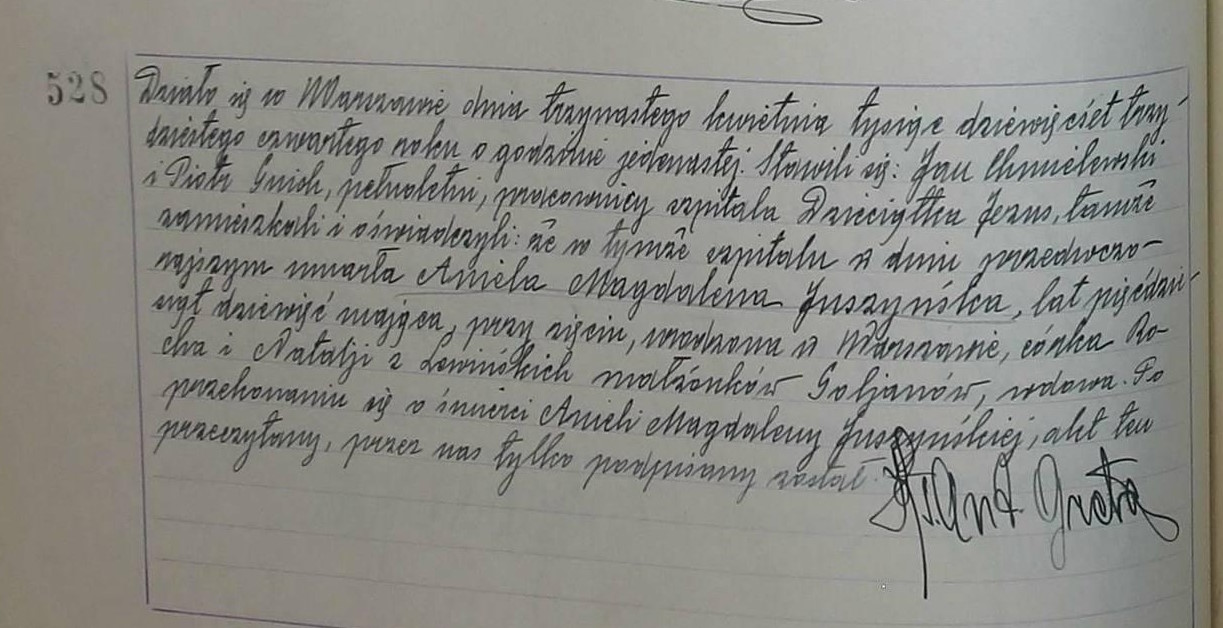 528
Działo się w Warszawie dnia trzynastego kwietnia tysiąc dziewięćset trzy-
dziestego czwartego roku o godzinie jedenastej. Stawili się: Jan Chmielewski
i Piotr Gnich, pełnoletni, pracownicy szpitala Dzieciątka Jezus, tamże
zamieszkali i oświadczyli: że w tymże szpitalu w dniu przedwczo-
rajszym umarła Aniela Magdalena Juszyńska, lat pięćdzie-
siąt dziewięć mająca, przy zięciu, urodzona w Warszawie, córka Ro-
cha i Natalji z Lewińskich małżonków Soljanów, wdowa. Po
przekonaniu się o śmierci Anieli Magdaleny Juszyńskiej, akt ten
przeczytany, przez nas tylko podpisany został.
Ks. Ant.